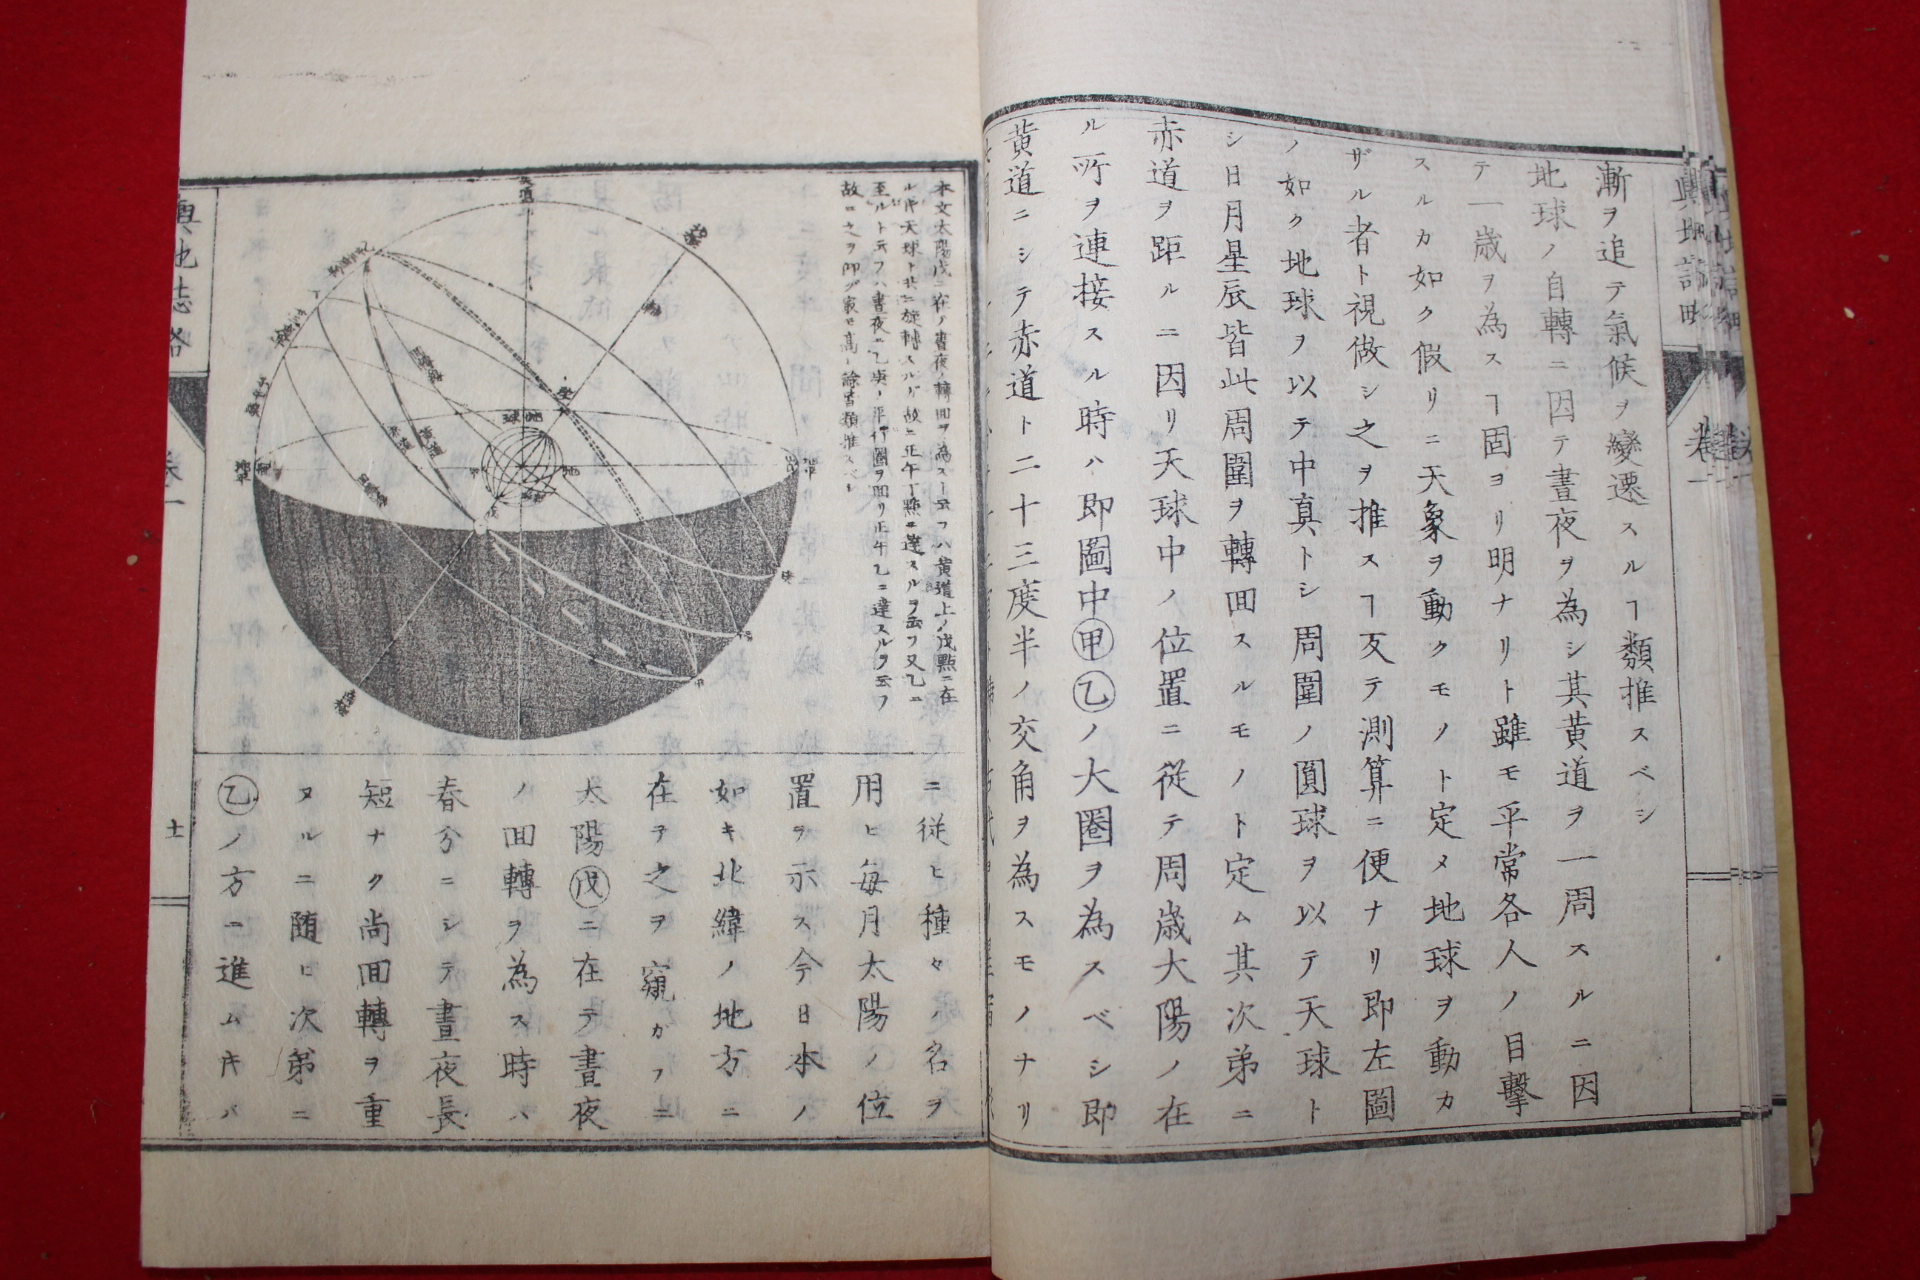 漸ヲ追テ氣候ヲ變遷スルヿ類推スベシ
地球ノ自轉ニ因テ晝夜ヲ為シ其黄道ヲ一周スルニ因
テ一歳ヲ為スヿ固ヨリ明ナリト雖モ平常各人ノ目撃
スルカ如ク假リニ天象ヲ動クモノト定メ地球ヲ動カ
ザル者ト視做シ之ヲ推スヿ反テ測算ニ便ナリ即左圖
ノ如ク地球ヲ以テ中真トシ周圍ノ圓球ヲ以テ天球ト
シ日月星辰皆此周圍ヲ轉回スルモノト定ム其次第ニ
赤道ヲ距ルニ因リ天球中ノ位置ニ從テ周歳大陽ノ在
ル所ヲ連接スル時ハ即圖中甲乙ノ大圏ヲ為スベシ即
黄道ニシテ赤道ト二十三度半ノ交角ヲ為スモノナリ
本文太陽戊ニ在ノ晝夜ノ轉回ヲ為スト云フハ黄道上ノ戊點ニ在
ルキ天球ト共ニ旋轉スルガ故ニ正午丁點ニ達スルヲ云フ又乙ニ
至ルト云フハ晝夜ニ乙庚ノ平行圏ヲ回リ正午乙ニ達スルヲ云フ
故ニ之ヲ仰グ最モ高シ餘皆類推スベシ
地球
赤道
黄道
ニ従ヒ種々ノ名ヲ
用ヒ毎月太陽ノ位
置ヲ示ス今日本ノ
如キ北緯ノ地方ニ
在ヲ之ヲ窺カフニ
太陽戊ニ在テ晝夜
ノ回轉ヲ為ス時ハ
春分ニシテ晝夜長
短ナク尚回轉ヲ重
ヌルニ随ヒ次第ニ
乙ノ方ニ進ムキハ
輿地誌畧
卷一
十一